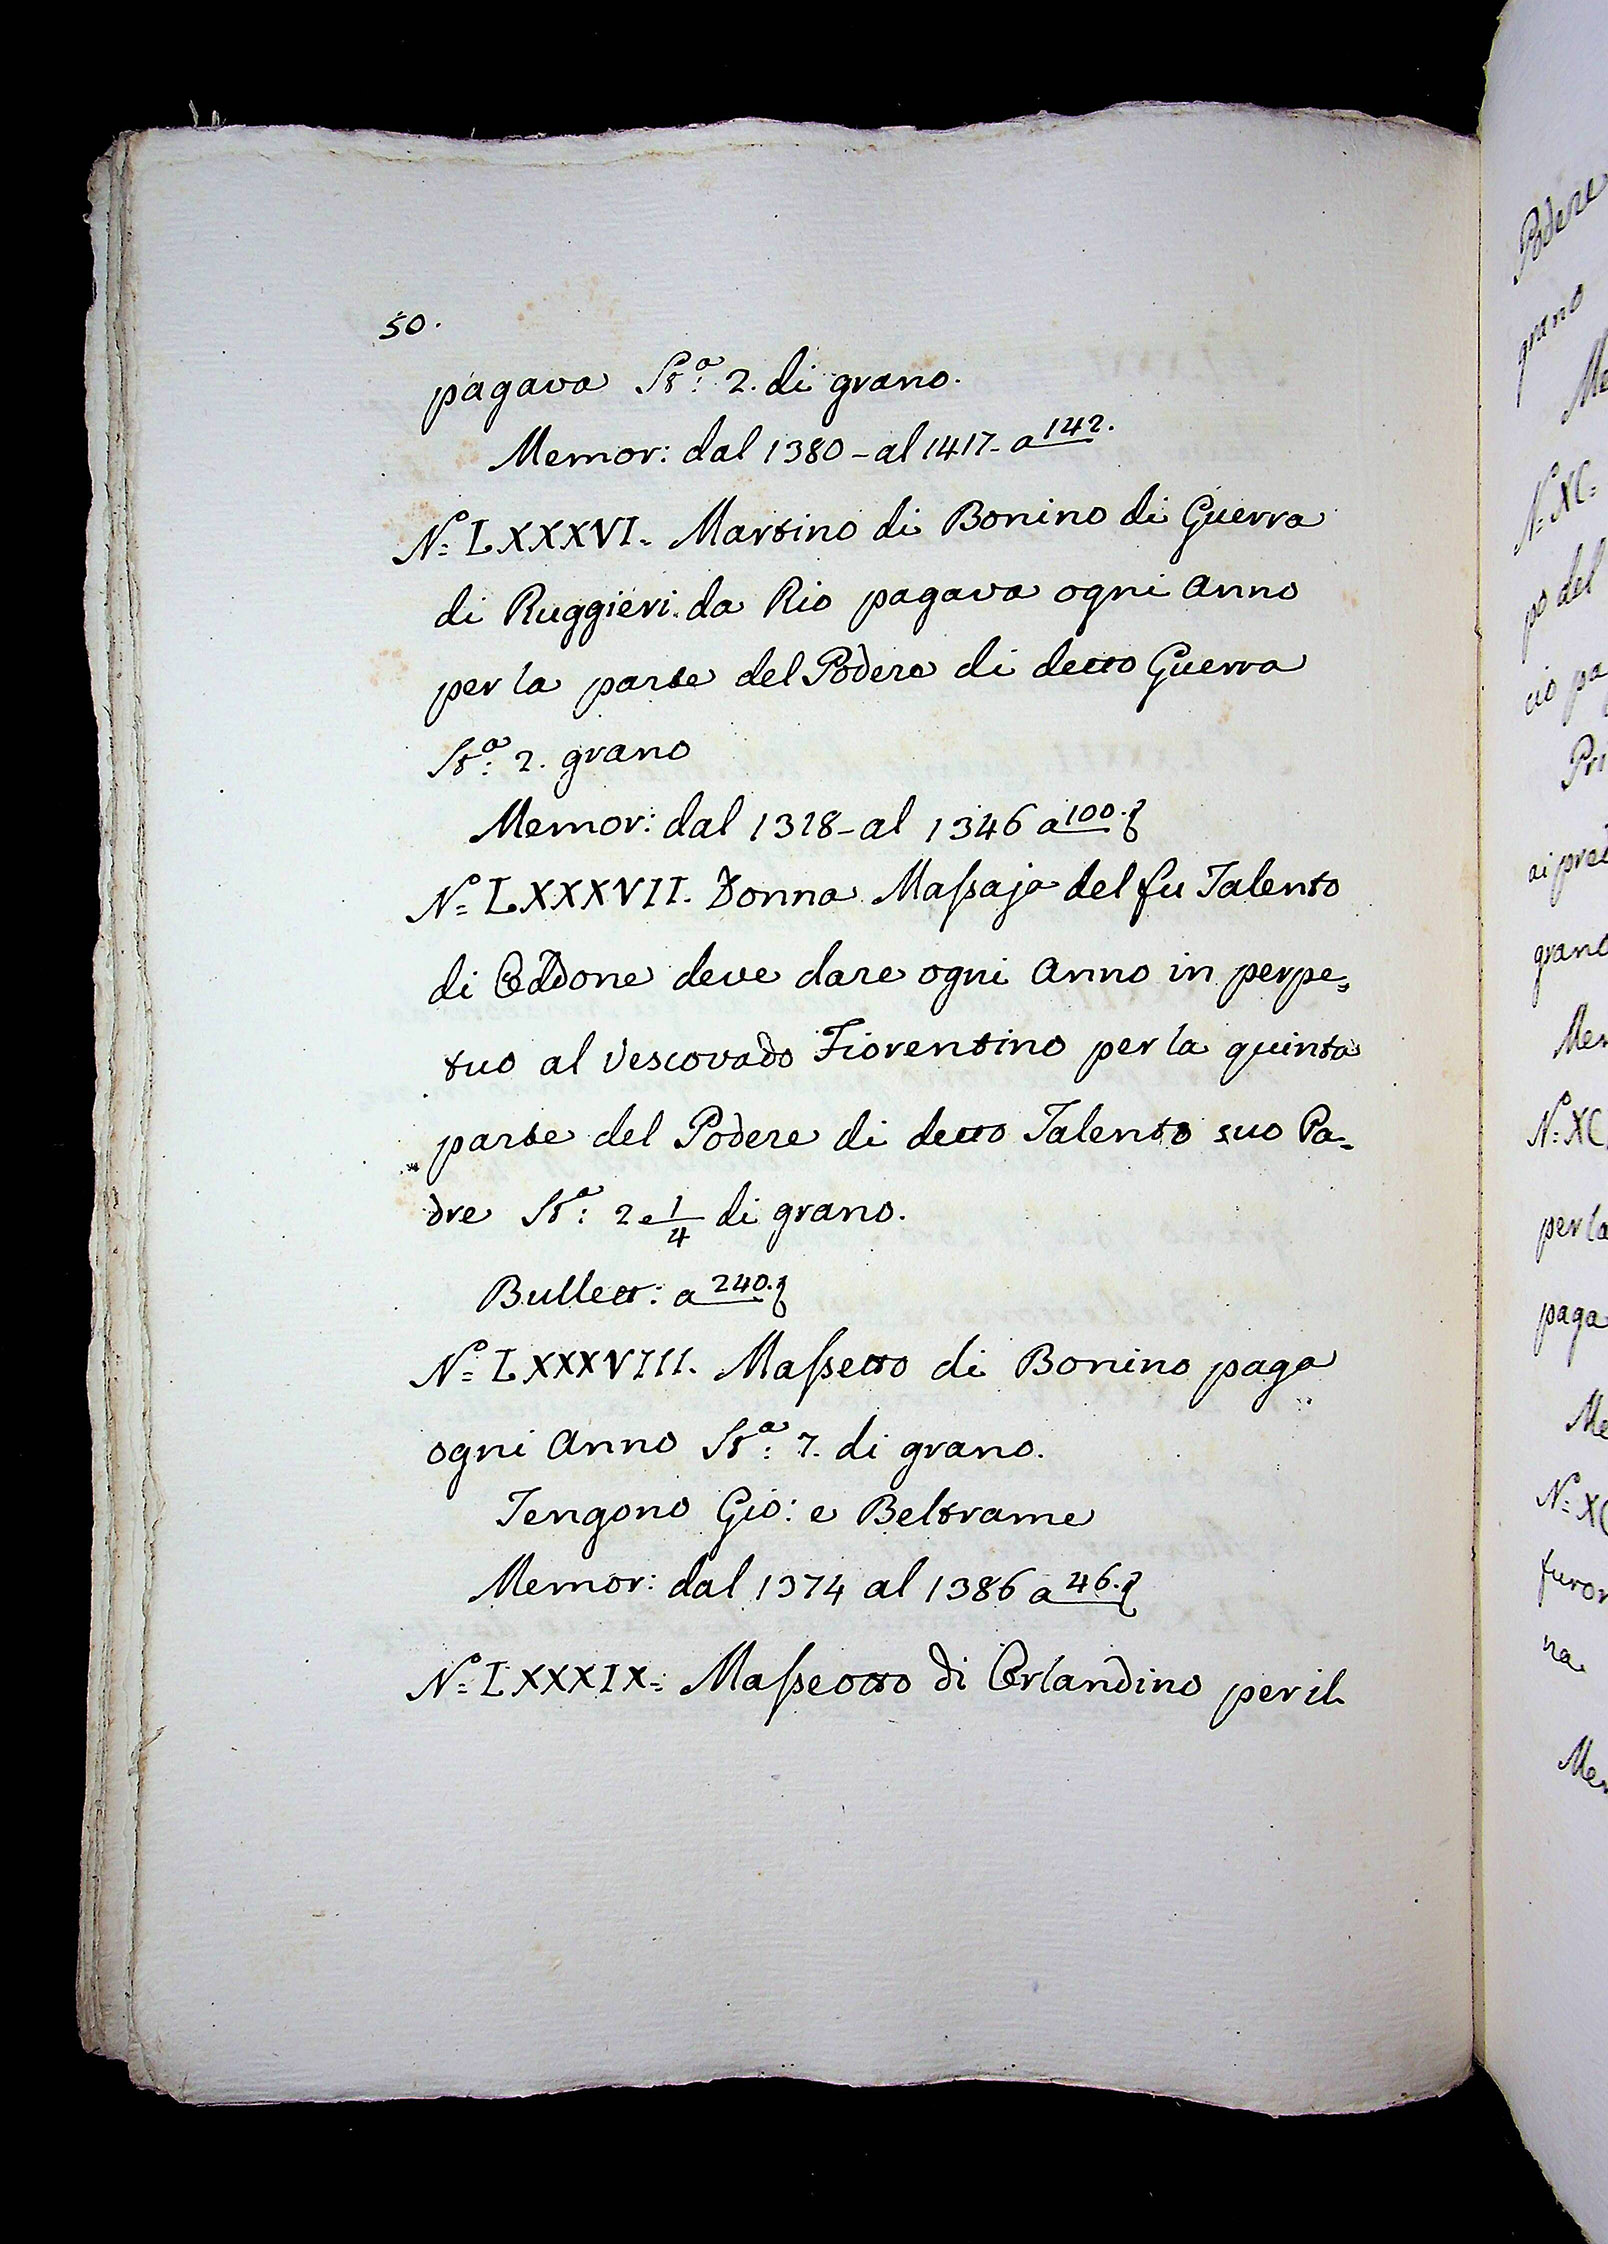 50.
pagava St.ª 2. di grano.
Memor: dal 1380 - al 1417 - a 142.
N.º LXXXVI. Martino di Bonino di Guerra
di Ruggieri da Rio pagava ogni Anno
per la parte del Podere di detto Guerra
St.ª 2. grano
Memor: dal 1318 - al 1346 a 100.
N.º LXXXVII. Donna Massaja del fu Talento
di Oddone deve dare ogni Anno in perpe=
tuo al Vescovado Fiorentino per la quinta
parte del Podere di detto Talento suo Pa=
dre St.ª 2 e 1/4 di grano.
Bullett: a 240.
N.º LXXXVIII. Massetto di Bonino paga
ogni Anno St.ª 7. di grano.
Tengono Gio: e Beltrame
Memor: dal 1374 al 1386 a 46.
N.º LXXXIX. Masseotto di Orlandino per il
Podere
grano
N.º XC.
po del
cio pa
grano
N.º XC
per la
paga
N.º XC
na